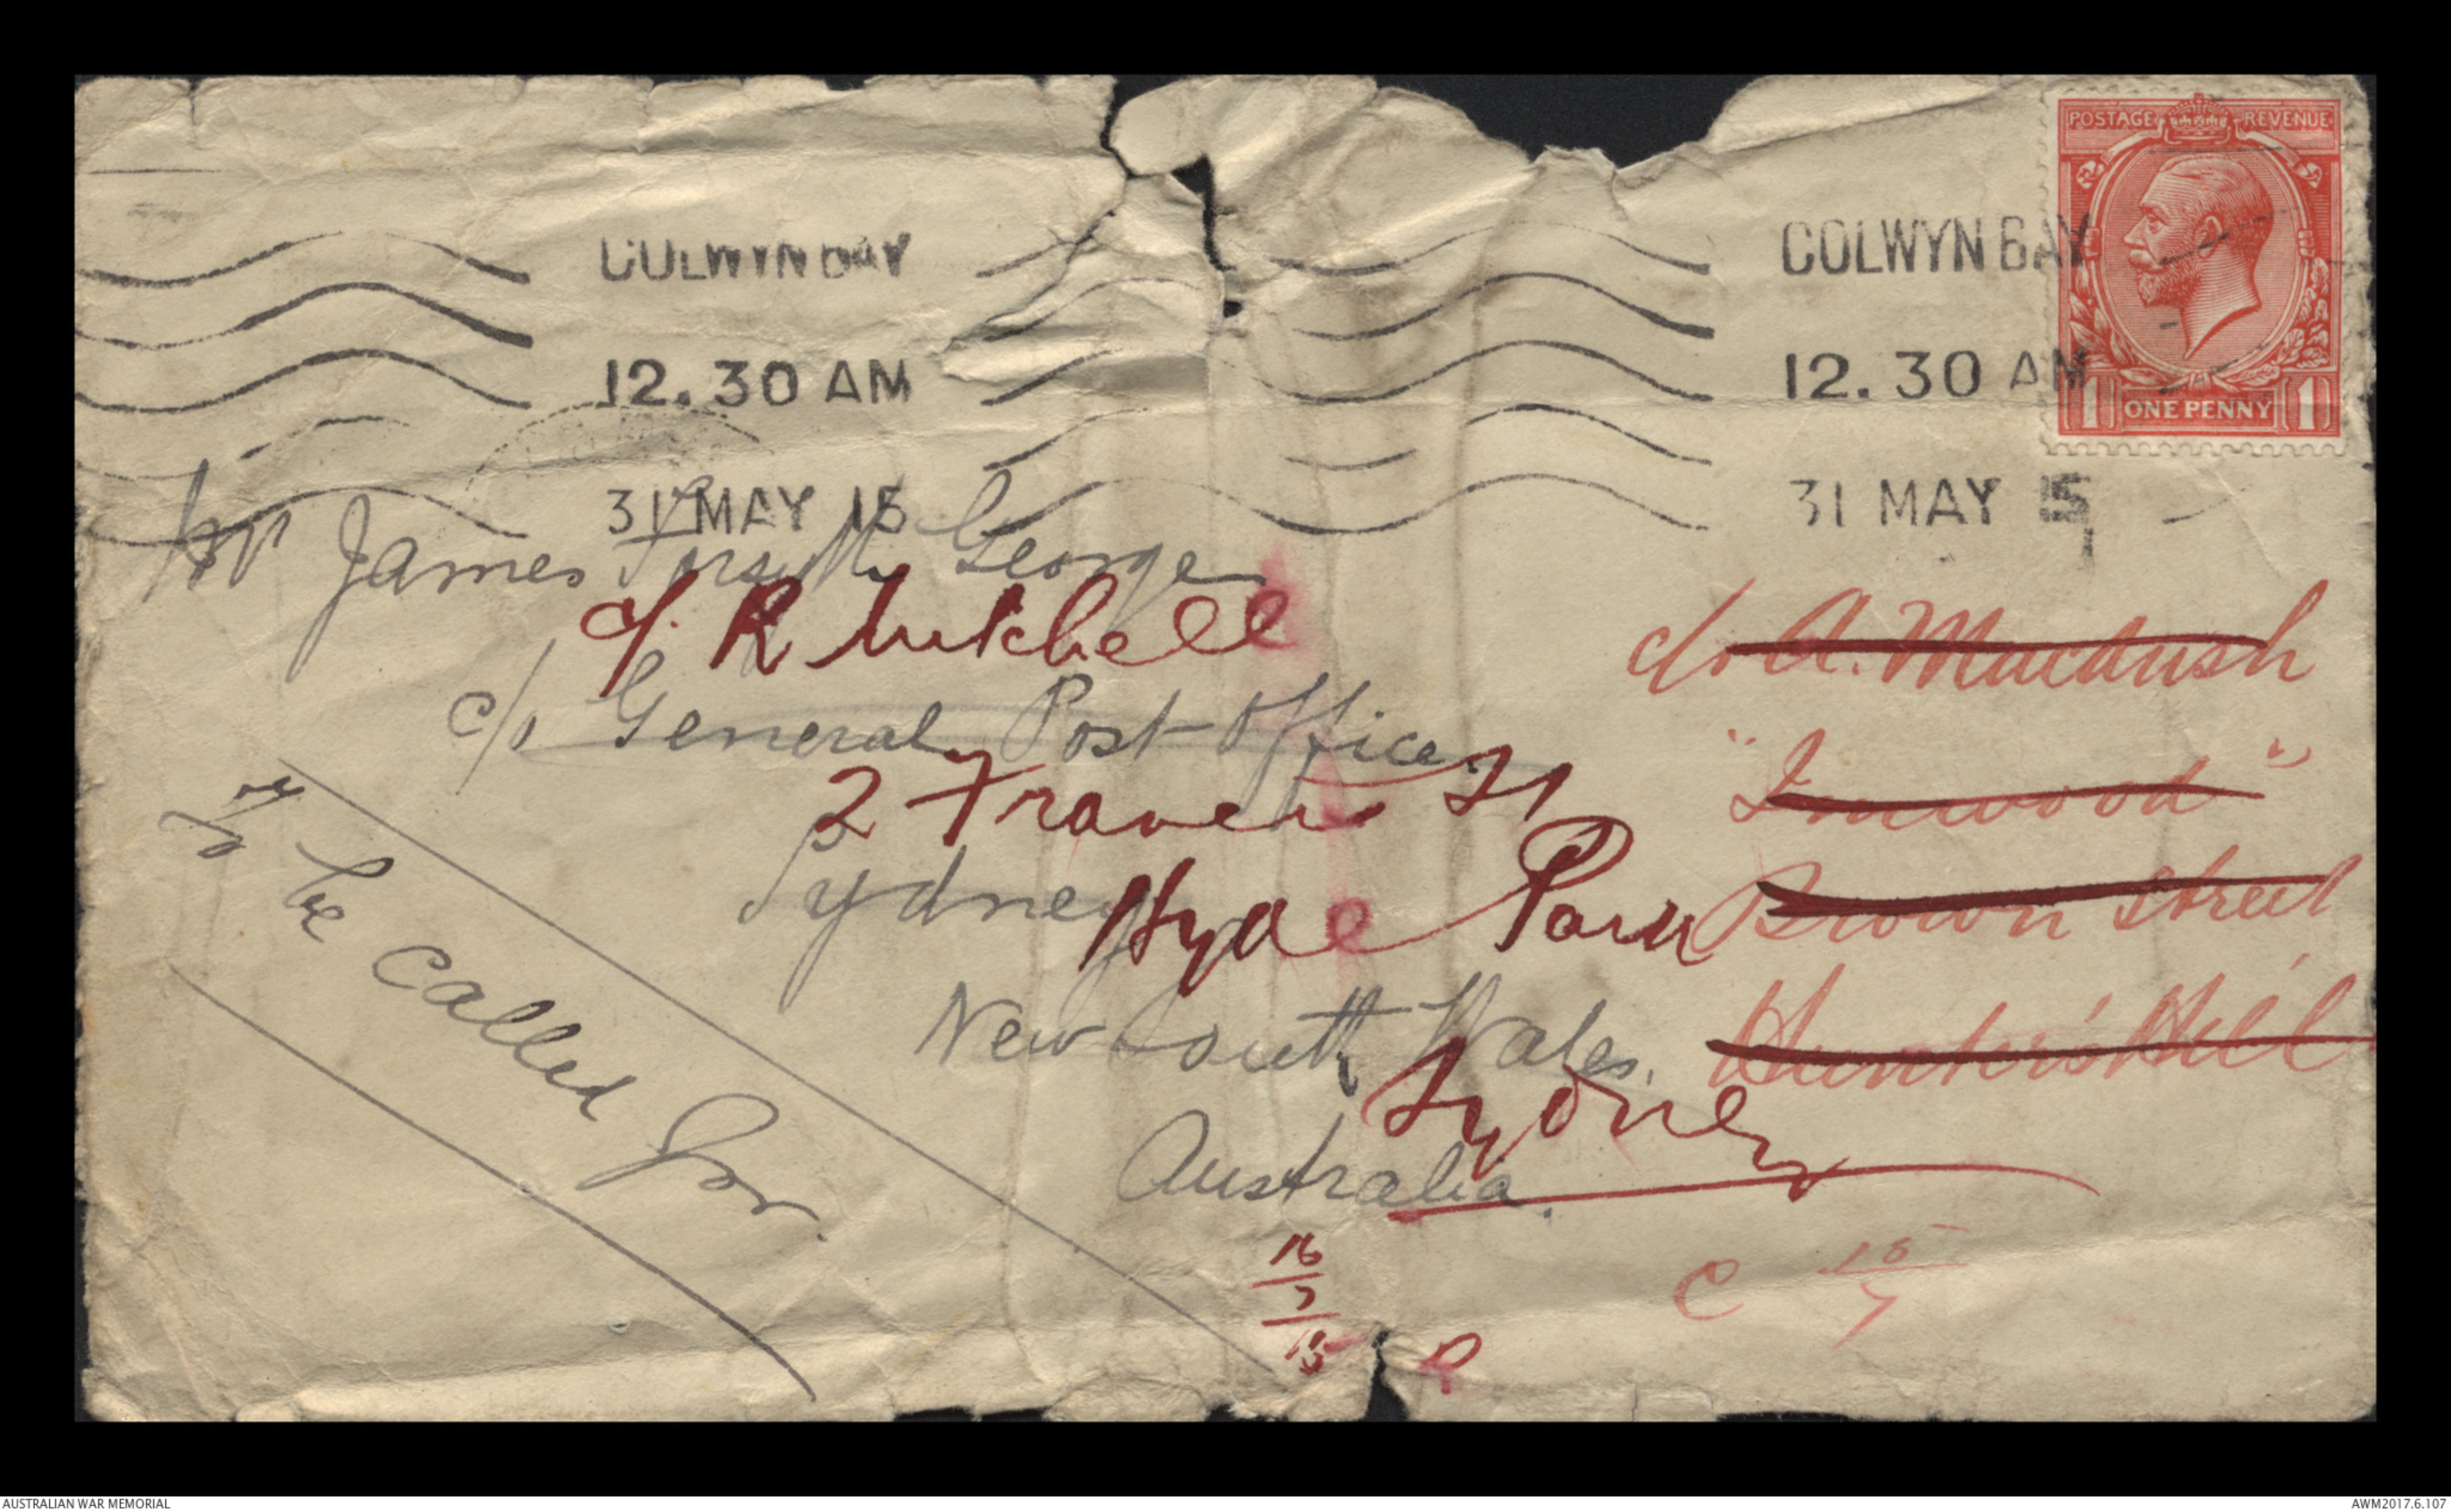 POSTAGE REVENUE
COLWYN BAY
COLWYN BAY
12.30 AM
12.30 AM
1 ONE PENNY 1
31 MAY 15
31 MAY 15
Mr James Forsyth George
c/. R Mitchell
c/o General Post Office
2 St
Sydney
Hyde Park
New South Wales.
Sydney
Australia.
To be called for.
c/o A.
" "
Brown Street
Hunter's Hill
16
7
15
C 15
7
AUSTRALIAN WAR MEMORIAL
AWM2017.6.107